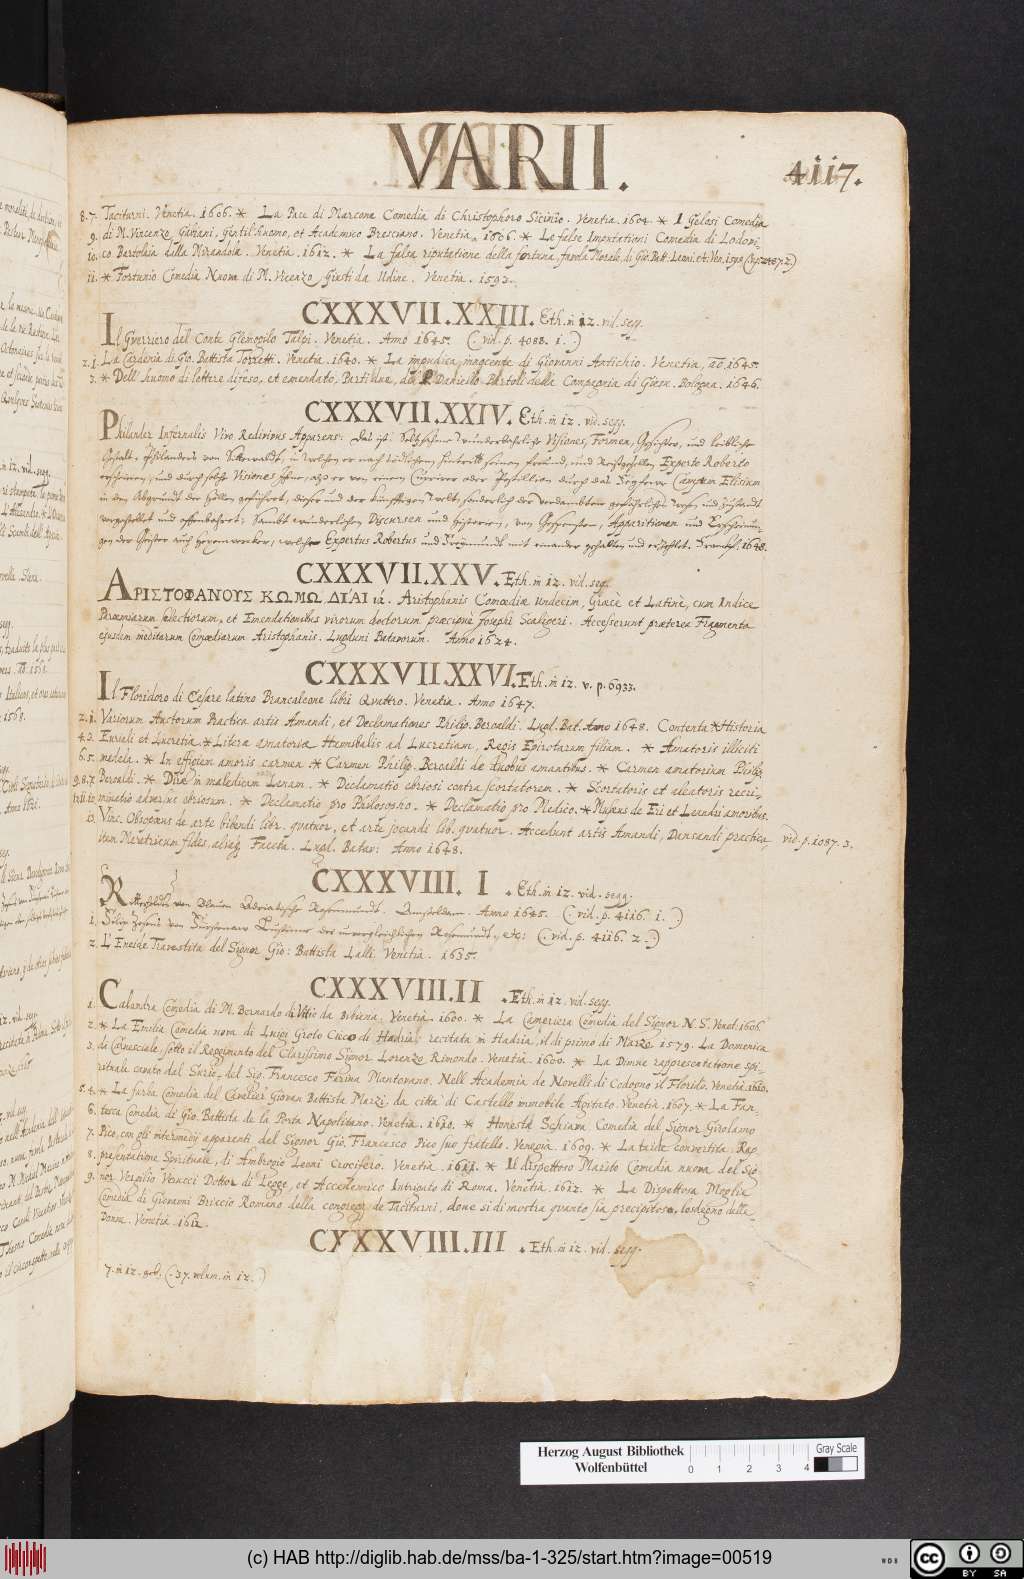 VARII.
4117.
8. 7. Taciturni. Venetia. 1606. * La Pace di Marcone Comedia di Christophoro Sicinio. Venetia. 1604. * I Gelosi Comedia
9. di M. Vincenzo Gabiani, Gentil'huomo, et Academico Bresciano. Venetia. 1606. * Le false Imputationi Comedia di Lodovi-
10. co Bartolaia della Mirandola. Venetia. 1612. * La falsa riputatione della fortuna, favola Morale di Gio. Batt. Leoni. et. Ven. 1596
11. * Fortunio Comedia Nuova di M. Vicenzo Giusti da Udine. Venetia. 1593.
CXXXVII.XXIII. Eth. in 12. vid. seqq.
Il Guerriero del Conte Glenopilo Talpi. Venetia. Anno 1645. (. vid. p. 4088. 1. .)
2. 1. La Cardenia di Gio. Battista Torretti. Venetia. 1640. * La impudica innocente di Giovanni Antichio. Venetia, ao. 1645.
3. * Dell' huomo di lettere difeso, et emendato, Parti due, del P. Daniello Bartoli della Compagnia di Giesu. Bologna. 1646.
CXXXVII.XXIV. Eth. in 12. vid. seqq.
Philander Infernalis Vivo Redivivus Apparens. Das ist Seltzahme Wunderbahrliche Visiones, Formen, Gesichter, und leibliche
Gestalt, Philanders von Sittewaldt, in welchen er nach tödlichem hintritt seinem freund, und Reissgesellen Experto Roberto
erschienen, und durch solche Visiones ihme, alss er von einem Currirer oder Postillion durch das fegfewr Campum Elisium
in den Abgrundt der Höllen geführet, dieser und der künfftigen Welt, sonderlich der verdambten gefährliches Wesen und Zustandt
vorgestellet und offenbahret; sambt wunderlichen Discursen und Historien, von Gespensten, Apparitionen und Erscheinun-
gen der Geister auch Hexenwercken, welche Expertus Robertus und Freymundt mit einander gehalten und erzehlet. Franckf. 1648.
CXXXVII.XXV. Eth. in 12. vid. seqq.
ΑΡΙΣΤΟΦΑΝΟΥΣ ΚΩΜΩΔΙΑΙ ιά. Aristophanis Comœdiæ undecim, Græcè et Latinè, cum Indice
Parœmiarum selectiorum, et Emendationibus virorum doctorum præcipuè Josephi Scaligeri. Accesserunt præterea Fragmenta
ejusdem ineditarum Comœdiarum Aristophanis. Lugduni Batavorum. Anno 1624.
CXXXVII.XXVI. Eth. in 12. v. p. 6933.
Il Floridoro di Cesare latino Brancaleone libri Quattro. Venetia. Anno 1647.
2. 1. Variorum Auctorum Practica artis Amandi, et Declamationes Philip. Beroaldi. Lugd. Bat. Anno 1648. Contenta * Historia
4. 3. Euriali et Lucretiæ. * Litera amatoriæ Hannibalis ad Lucretiam, Regis Epirotarum filiam. * Amatoris illiciti
6. 5. medela. * In effigiem amoris carmen. * Carmen Philip. Beroaldi de duobus amantibus. * Carmen amatorium Philip.
9. 8. 7. Beroaldi. * Diræ in maledicam Lenam. * Declamatio ebriosi contra scortatorem. * Scortatoris et aleatoris recri-
12. 11. 10. minatio adversus ebriosum. * Declamatio pro Philosopho. * Declamatio pro Medico. * Musæus de Eri et Leandri amoribus.
13. Vinc. Obsopœus de arte bibendi libr. quatuor, et arte jocandi lib. quatuor. Accedunt artis Amandi, Dansandi practica,
vid. p. 1087. 3.
item Meretricum fides, aliaq. Faceta. Lugd. Batav: Anno 1648.
CXXXVIII. I. Eth. in 12. vid. seqq.
Ritterholds von Blauen Adriatische Rosemund. Amsteldam. Anno 1645. (. vid. p. 4116. 1. .)
1. Filip Zesens von Fürstenaw etc: (. vid. p. 4116. 2. .)
2. L'Eneide Travestita del Signor Gio: Battista Lalli. Venetia. 1635.
CXXXVIII.II. Eth. in 12. vid. seqq.
1. Calandra Comedia di M. Bernardo di Vitio da Bibiena. Venetia. 1600. * La Cameriera Comedia del Signor N. S. Venet. 1606.
2. * La Emilia Comedia nova di Luigi Groto Cieco di Hadria, recitata in Hadria, il dì primo di Marzo 1579. La Domenica
3. di Carnesciale, sotto il Reggimento del Clarissimo Signor Lorenzo Rimondo. Venetia. 1600. * La Dimne rappresentatione spi-
rituale cavata dal Surio, del Sig. Francesco Farina Mantovano. Nell Academia de Novelli di Codogno il Florido. Venetia. 1610.
5. 4. * La furba Comedia del Cavelier Giovan Battista Marzi, da città di Castello immobile Agitato. Venetia. 1607. * La Fan-
6. tesca Comedia di Gio. Battista de la Porta Napolitano. Venetia. 1610. * Honesta Schiava Comedia del Signor Girolamo
7. Pico, con gli intermedij apparenti del Signor Gio. Francesco Pico suo fratello. Venegia. 1609. * La taide convertita. Rap-
8. presentatione Spirituale, di Ambrogio Leoni Crocifero. Venetia. 1611. * Il dispettoso Marito Comedia nuova del Sig-
9. nor Vergilio Verucci Dottor di Legge, et Accademico Intrigato di Roma. Venetia. 1612. * La Dispettosa Moglie
Comedia di Giovanni Briccio Romano della congrega de Taciturni, dove si di mostra quanto sia precipitoso, lo sdegno della
Donna. Venetia. 1612.
CXXXVIII.III. Eth. in 12. vid. seqq.
7. in 12. (. 37. volum. in 12. .)
Herzog August Bibliothek
Wolfenbüttel
Gray Scale
0 1 2 3 4
(c) HAB http://diglib.hab.de/mss/ba-1-325/start.htm?image=00519
WDB
cc BY SA